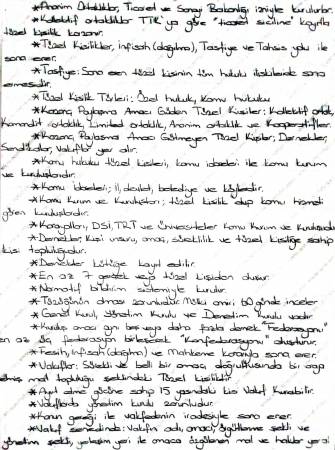 *Anonim Ortaklıklar, Ticaret ve Sanayi Bakanlığı izniyle kurulurlar.
*Kollektif ortaklıklar TTK'ya göre "ticaret siciline" kayıtla
tüzel kişilik kazanır.
*Tüzel Kişilikler, infisah (dağılma), Tasfiye ve Tahsis yolu ile
sona erer.
*Tasfiye: Sona eren tüzel kişinin tüm hukuki ilişkilerinin sona
ermesidir.
*Tüzel Kişilik Türleri: Özel hukuk, Kamu hukuku
*Kazanç Paylaşma Amacı Güden Tüzel Kişiler: Kollektif ortak,
Komandit ortaklık, Limited ortaklık, Anonim ortaklık ve Kooperatifler
*Kazanç Paylaşma Amacı Gütmeyen Tüzel Kişiler; Dernekler,
Sendikalar, Vakıflar yer alır.
*Kamu hukuku tüzel kişileri, kamu idareleri ile kamu kurum
ve kuruluşlarıdır.
*Kamu İdareleri; il, devlet, belediye ve köylerdir.
*Kamu Kurum ve Kuruluşları; tüzel kişilik olup kamu hizmeti
gören kuruluşlardır.
*Karayolları, DSİ, TRT ve Üniversiteler Kamu Kurum ve Kuruluşudur
*Dernekler; Kişi unsuru, amaç, süreklilik ve tüzel kişiliğe sahip
kişi topluluğudur.
*Dernekler kütüğe kayıt edilir.
*En az 7 gerçek veya tüzel kişiden oluşur.
*Normatif bildirim sistemiyle kurulur.
*Tüzüğünün olması zorunludur. Mülki amiri 60 günde inceler
*Genel Kurul, Yönetim Kurulu ve Denetim Kurulu vardır
*Kuruluş amacı aynı beş veya daha fazla dernek "Federasyonu"
en az üç federasyon birleşerek "Konfederasyonu" oluşturur.
*Fesih, infisah (dağılma) ve Mahkeme kararıyla sona erer.
*Vakıflar: Sürekli ve belli bir amaç doğrultusunda bir araya
mal topluluğu şeklindeki Tüzel kişiliktir.
*Ayırt etme gücüne sahip 15 yaşındaki kişi Vakıf kurabilir.
*Vakıflarda yönetim kurulu zorunludur.
*Kanun gereği ile vakfedenin iradesiyle sona erer.
*Vakıf senedinde: Vakfın adı, amacı, örgütlenme şekli ve
yönetim şekli, yerleşim yeri ile amaca özgülenen mal ve haklar yer al